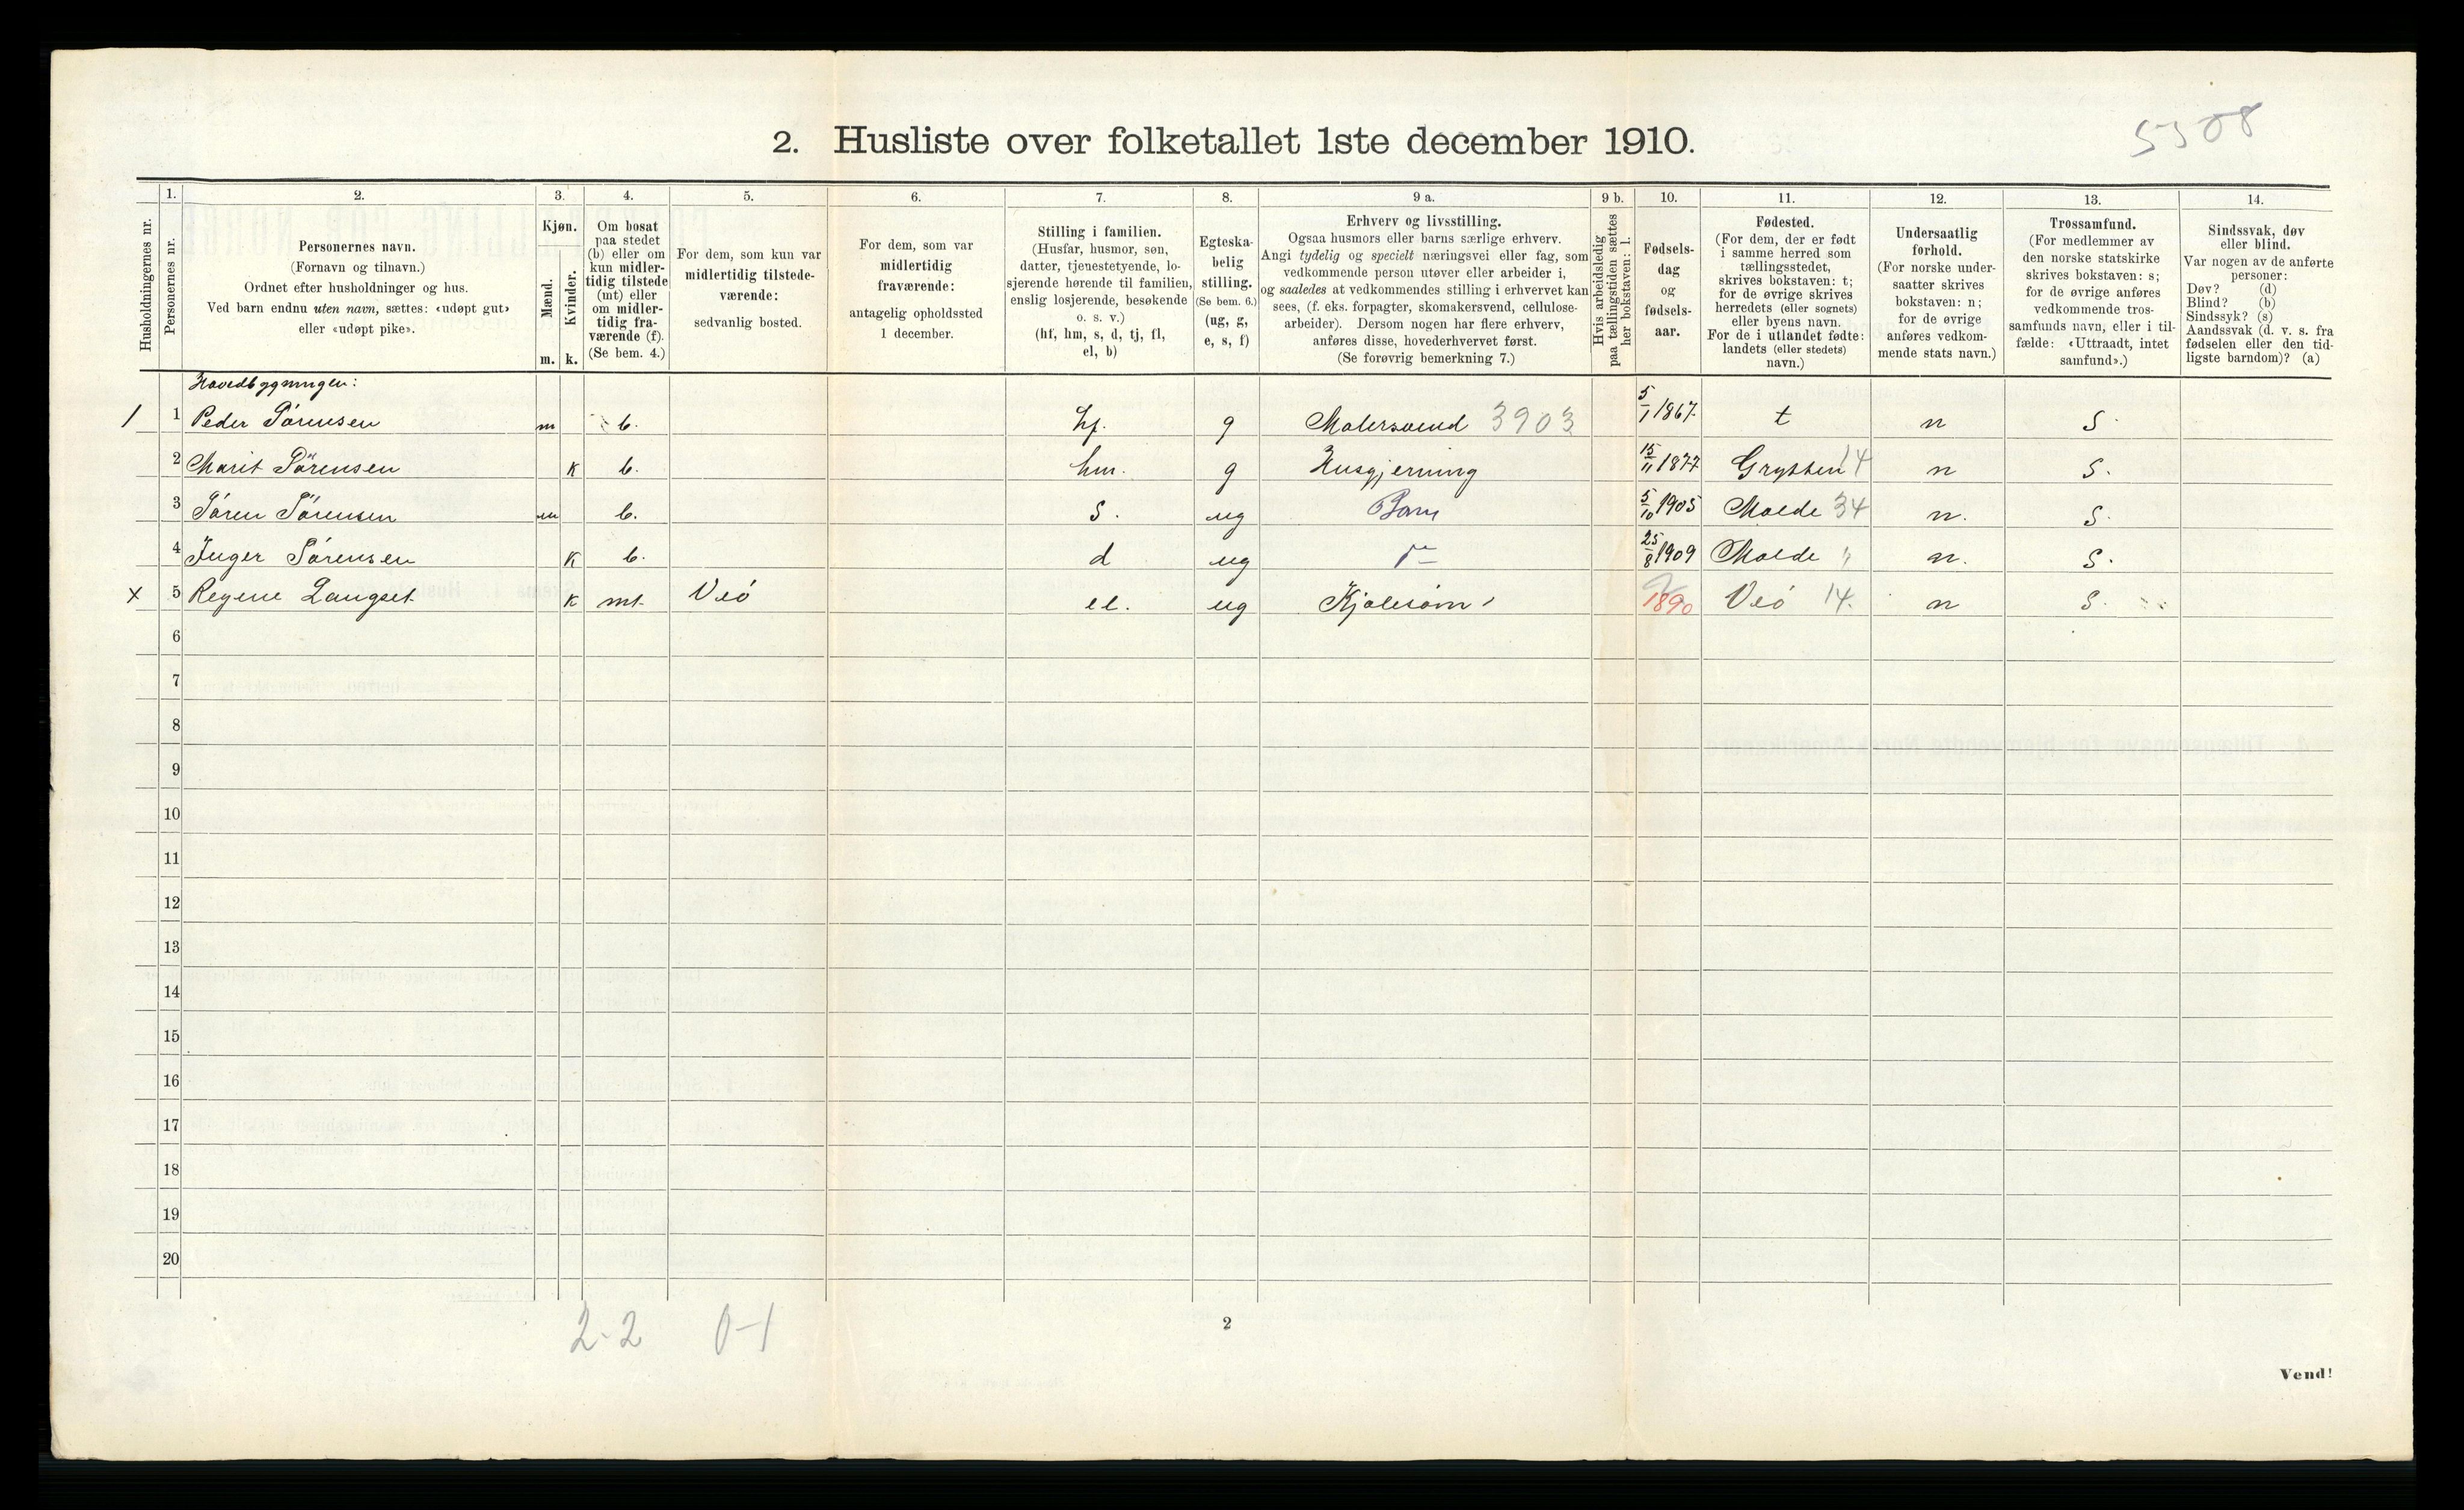 2. Husliste over folketallet 1ste december 1910.
5508
Husholdningernes nr.
1.
Personernes nr.
2.
Personernes navn.
(Fornavn og tilnavn.)
Ordnet efter husholdninger og hus.
Ved barn endnu uten navn, sættes: «udøpt gut»
eller «udøpt pike».
3.
Kjøn.
Mænd.
Kvinder.
m. k.
4.
Om bosat
paa stedet
(b) eller om
kun midler-
tidig tilstede
(mt) eller
om midler-
tidig fra-
værende (f).
(Se bem. 4.)
5.
For dem, som kun var
midlertidig tilstede-
værende:
sedvanlig bosted.
6.
For dem, som var
midlertidig
fraværende:
antagelig opholdssted
1 december.
7.
Stilling i familien.
(Husfar, husmor, søn,
datter, tjenestetyende, lo-
sjerende hørende til familien,
enslig losjerende, besøkende
o. s. v.)
(hf, hm, s, d, tj, fl,
el, b)
8.
Egteska-
belig
stilling.
(Se bem. 6.)
(ug, g,
e, s, f)
9 a.
Erhverv og livsstilling.
Ogsaa husmors eller barns særlige erhverv.
Angi tydelig og specielt næringsvei eller fag, som
vedkommende person utøver eller arbeider i,
og saaledes at vedkommendes stilling i erhvervet kan
sees, (f. eks. forpagter, skomakersvend, cellulose-
arbeider). Dersom nogen har flere erhverv,
anføres disse, hovederhvervet først.
(Se forøvrig bemerkning 7.)
9 b.
Hvis arbeidsledig
paa tællingstiden sættes
her bokstaven: l.
10.
Fødsels-
dag
og
fødsels-
aar.
11.
Fødested.
(For dem, der er født
i samme herred som
tællingsstedet,
skrives bokstaven: t;
for de øvrige skrives
herredets (eller sognets)
eller byens navn.
For de i utlandet fødte:
landets (eller stedets)
navn.)
12.
Undersaatlig
forhold.
(For norske under-
saatter skrives
bokstaven: n;
for de øvrige
anføres vedkom-
mende stats navn.)
13.
Trossamfund.
(For medlemmer av
den norske statskirke
skrives bokstaven: s;
for de øvrige anføres
vedkommende tros-
samfunds navn, eller i til-
fælde: «Uttraadt, intet
samfund».)
14.
Sindssvak, døv
eller blind.
Var nogen av de anførte
personer:
Døv? (d)
Blind? (b)
Sindssyk? (s)
Aandssvak (d. v. s. fra
fødselen eller den tid-
ligste barndom)? (a)
Hovedbygningen:
1 1 Peder Sörensen m b. hf. g Malersvend 3903 5/1 1867 t n S
2 Marit Sörensen K b. hm. g Husgjerning 15/11 1877 Grytten 14 n S.
3 Sören Sörensen m b. S. ug Barn 5/10 1905 Molde 34 n. S.
4 Inger Sörensen K b. d ug 25/8 1909 Molde " n. S.
x 5 Regene Langset K mt. Veö el. ug Kjolesöm 1890 Veö 14. n S.
6
7
8
9
10
11
12
13
14
15
16
17
18
19
20
2-2 0-1
2
Vend!